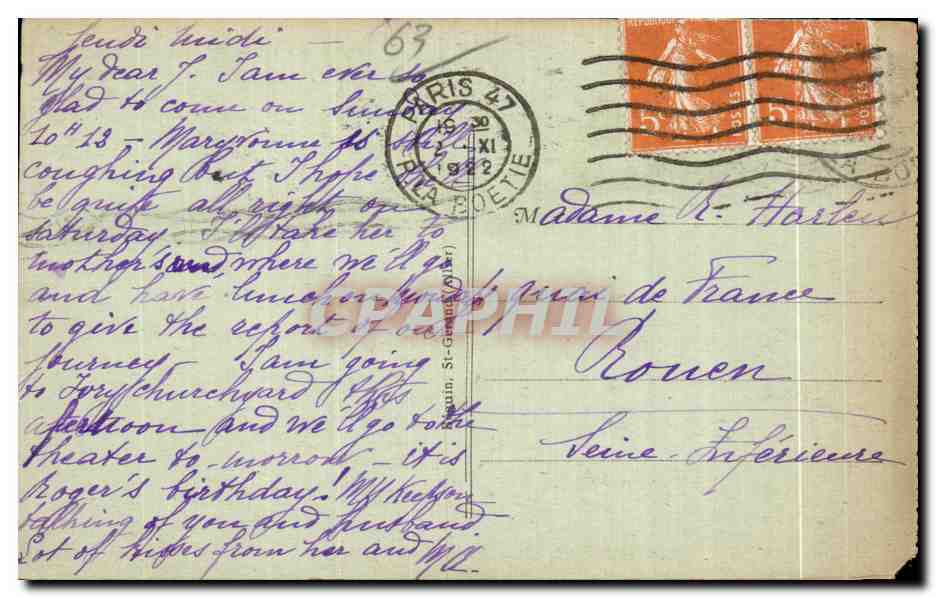 Jeudi midi —
63
My dear J. I am ever so
glad to come on Sunday
10H 12 — Maryvonne is still
coughing but I hope
be quite all right on
saturday. I'll take her to
mother's and, where we'll go
and have lunch on
to give the report of our
journey — I am going
to Ivry churchyard this
afternoon and we'll go to the
theater to-morrow — it is
Roger's birthday!
talking of you and husband
Lot of kisses from her and
PARIS 47
16 30
2 - XI
1922
R. LA BOETIE
REPUBLIQUE
5c
POSTES
5c
POSTES
Madame R. Harlen
quai de France
Rouen
Seine-Inférieure
St-Germain (Allier)
CPAPHIL